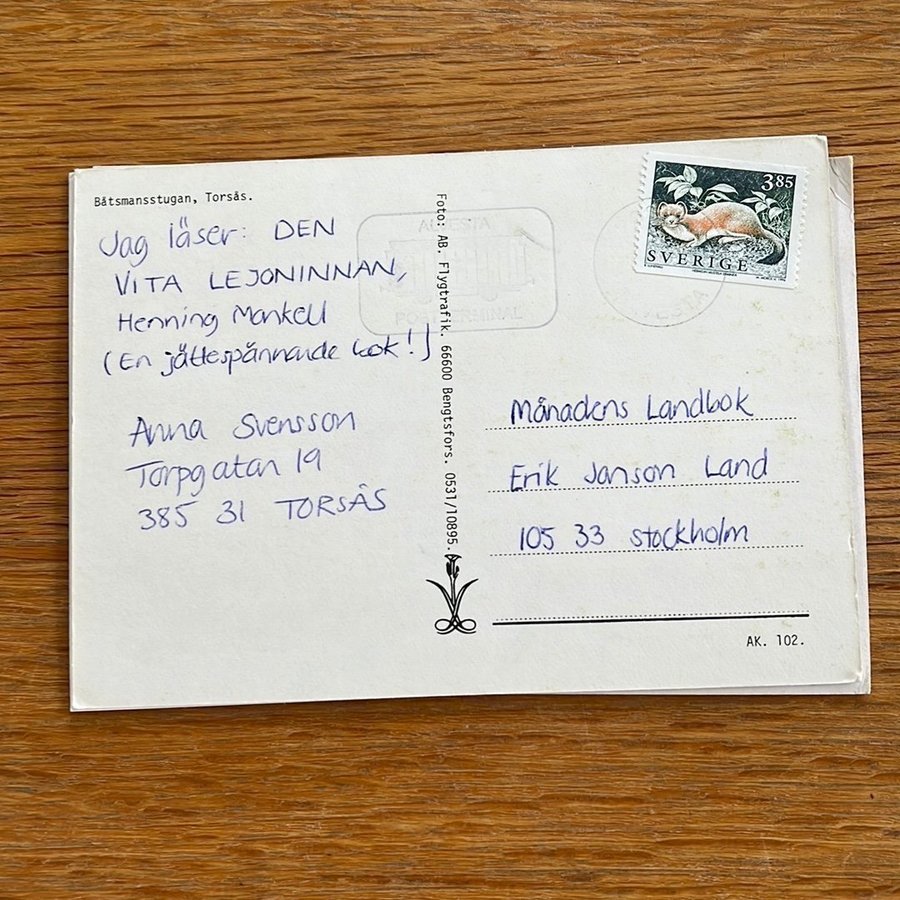 Båtsmansstugan, Torsås.
Jag läser: DEN
VITA LEJONINNAN,
Henning Mankell
(En jättespännande bok!)
Anna Svensson
Torpgatan 19
385 31 TORSÅS
Foto: AB. Flygtrafik. 66600 Bengtsfors. 0531/10895.
ALVESTA
POSTTERMINAL
3.85
SVERIGE
Månadens Landbok
Erik Janson Land
105 33 stockholm
AK. 102.